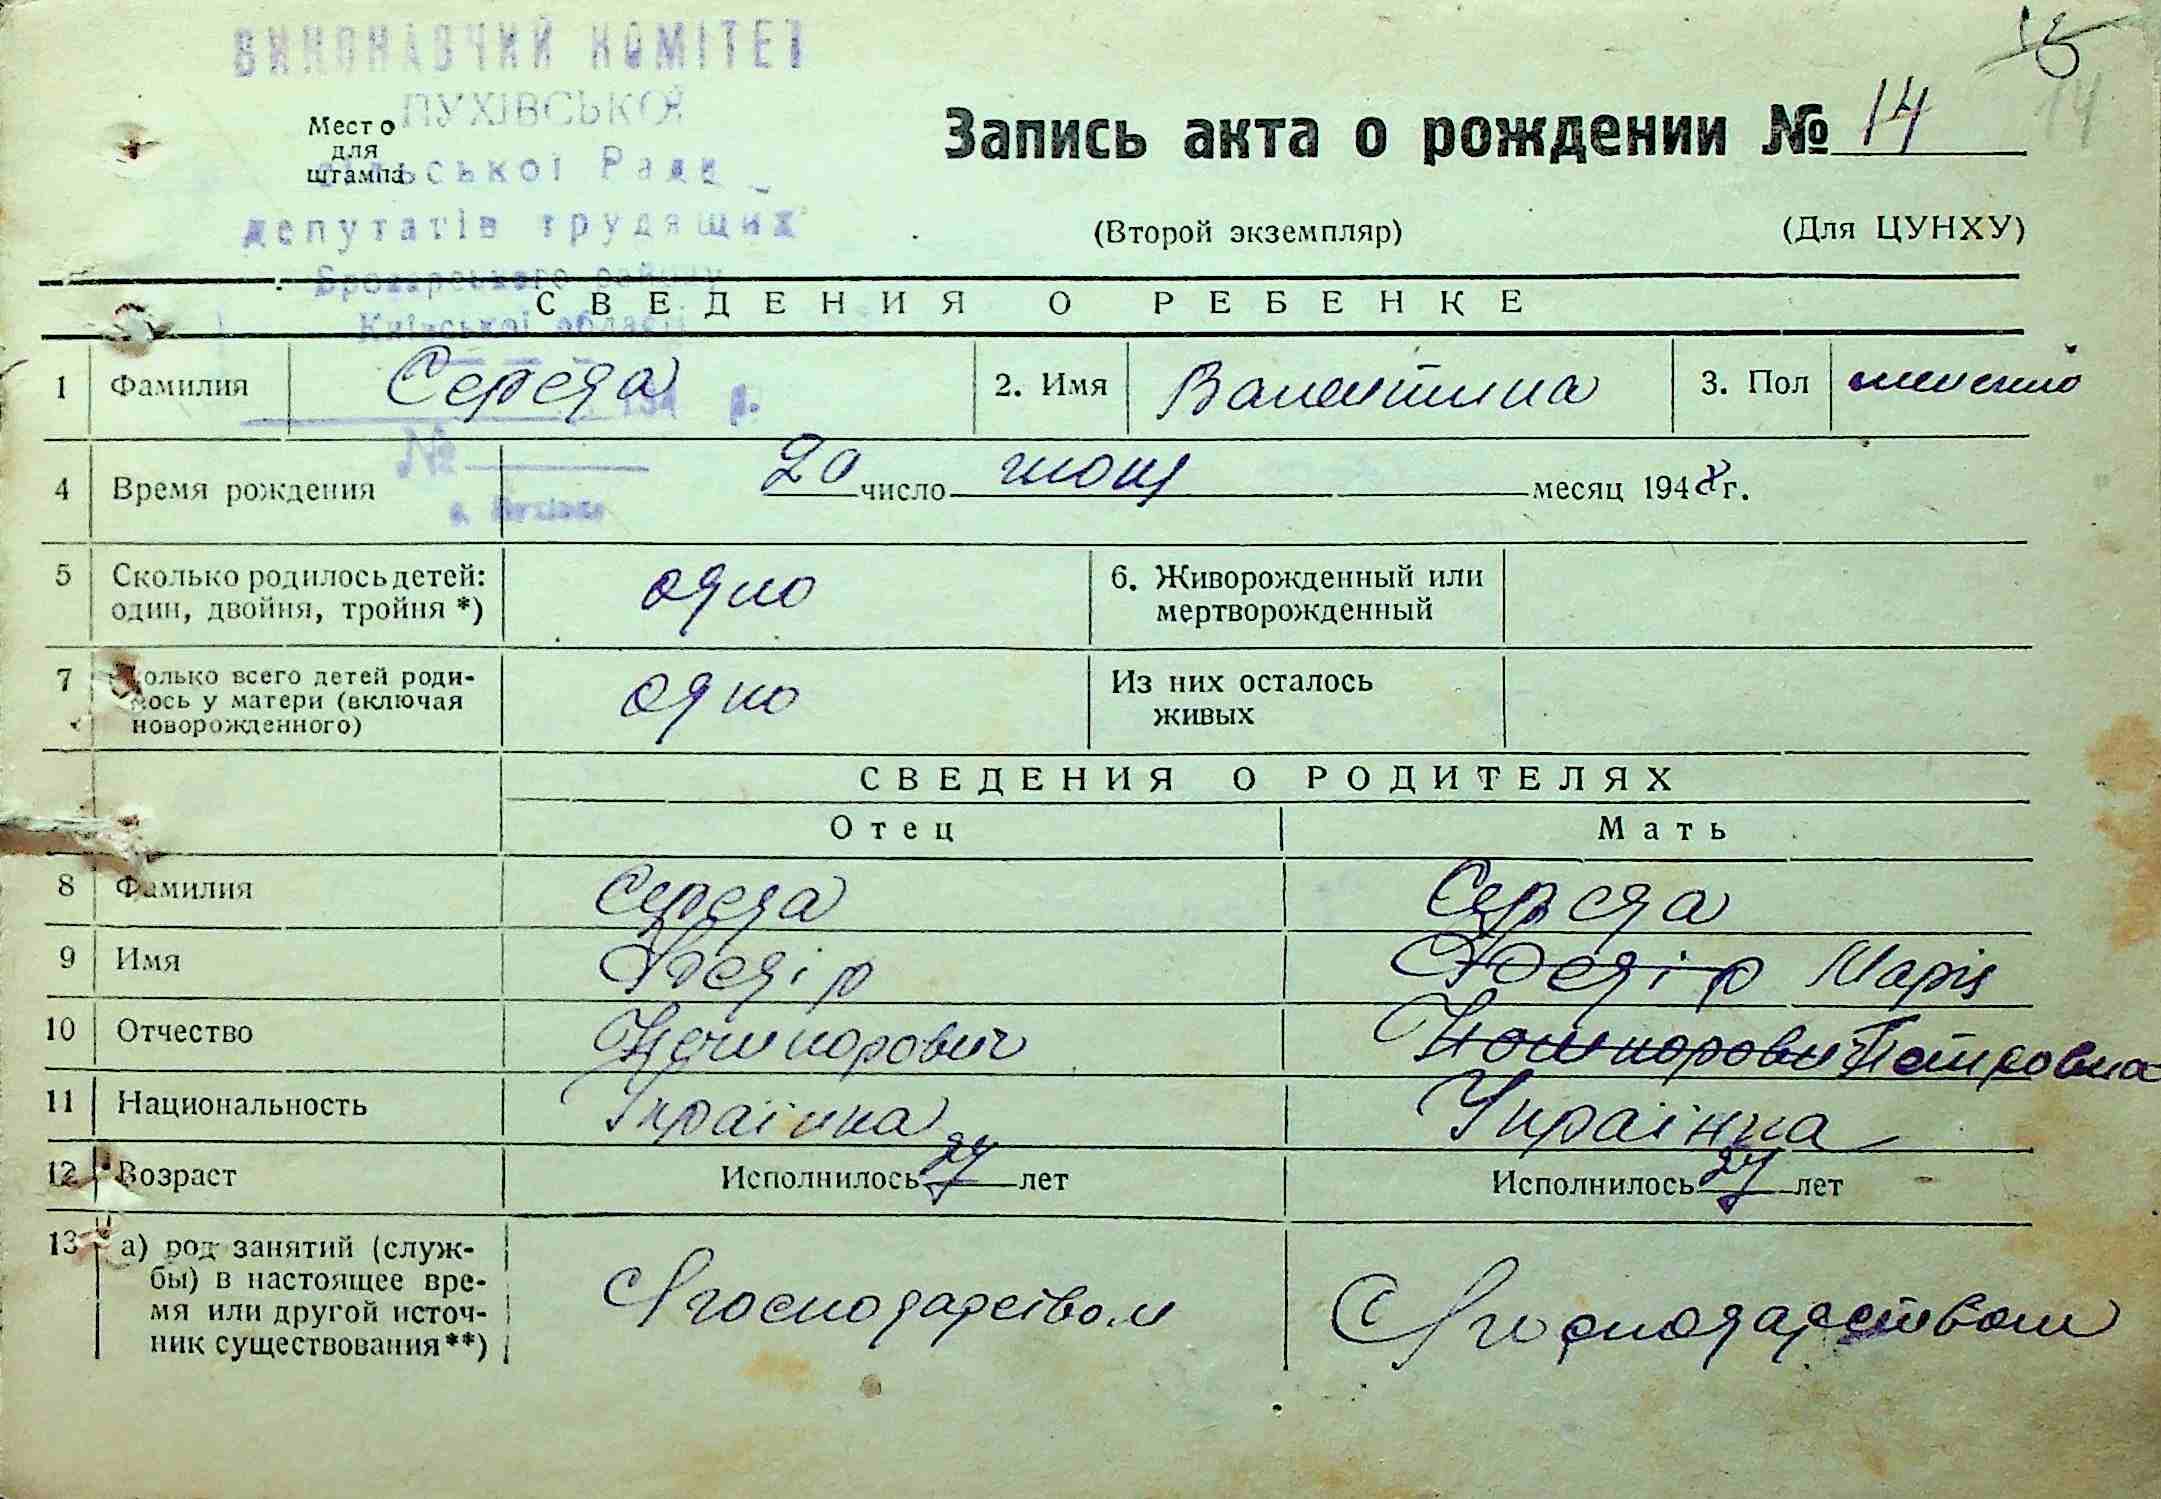 ВИКОНАВЧИЙ КОМІТЕТ
ПУХІВСЬКОЇ
сільської Ради
депутатів трудящих
Броварського району
Київської області
194 р.
№
с. Пухівка
Место
для
штампа
15
14
Запись акта о рождении № 14
(Второй экземпляр) (Для ЦУНХУ)
СВЕДЕНИЯ О РЕБЕНКЕ
1 Фамилия Середа 2. Имя Валентина 3. Пол
4 Время рождения 20 число июня месяц 1948 г.
5 Сколько родилось детей: одно 6. Живорожденный или
один, двойня, тройня *) мертворожденный
7 Сколько всего детей роди- одно Из них осталось
лось у матери (включая живых
новорожденного)
СВЕДЕНИЯ О РОДИТЕЛЯХ
Отец Мать
8 Фамилия Середа Середа
9 Имя Федір Федір Марія
10 Отчество Нечипорович Петровна
11 Национальность Українка Українка
12 Возраст Исполнилось 27 лет Исполнилось 27 лет
13 а) род занятий (служ-
бы) в настоящее вре- С/господарством С/господарством
мя или другой источ-
ник существования**)